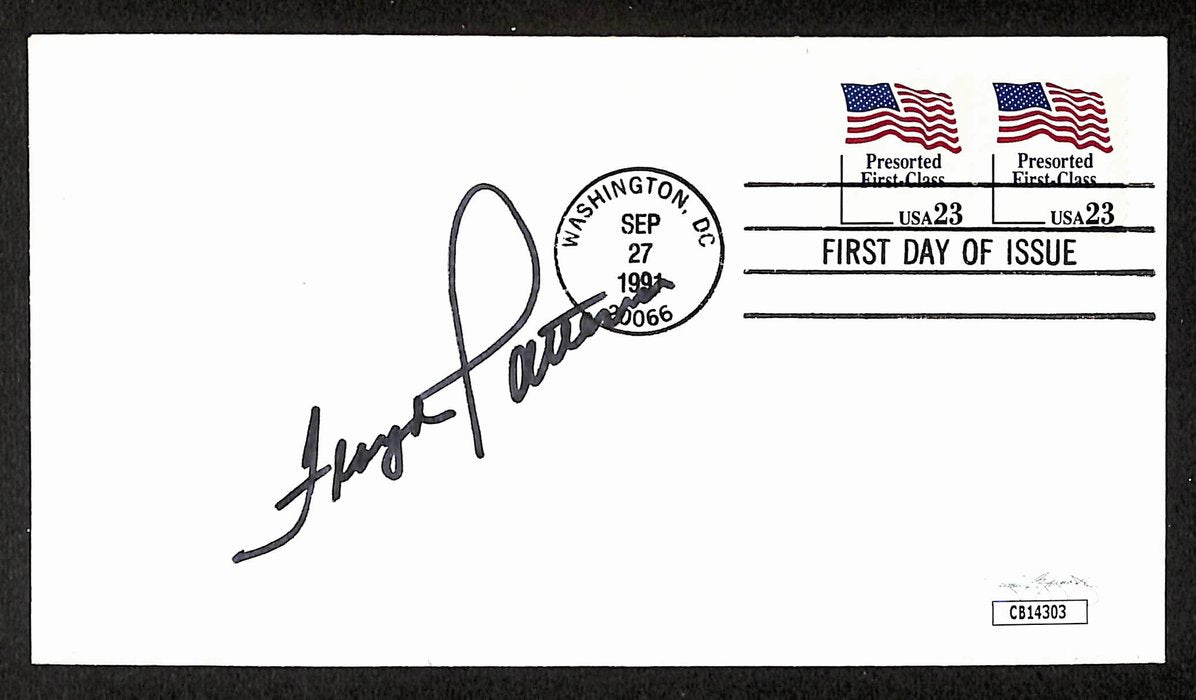 Presorted
First-Class
USA 23
Presorted
First-Class
USA 23
WASHINGTON, DC
SEP
27
1991
20066
FIRST DAY OF ISSUE
Floyd Patterson
CB14303